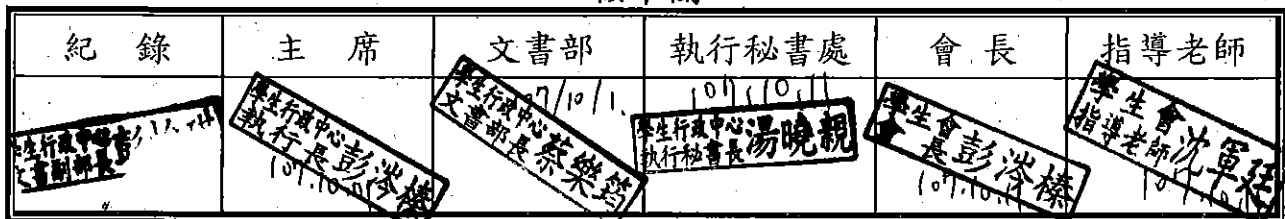 紀錄 主席 文書部 執行秘書處 會長 指導老師
學生行政中心
文書副部長
學生行政中心
執行長 彭涔榛
107.10.01
學生行政中心
文書部長 蔡樂筠
107/10/1.
107.10.1
學生行政中心
執行秘書長 湯曉親
學生會
會長 彭涔榛
107.10.1
學生會
指導老師 沈軍廷